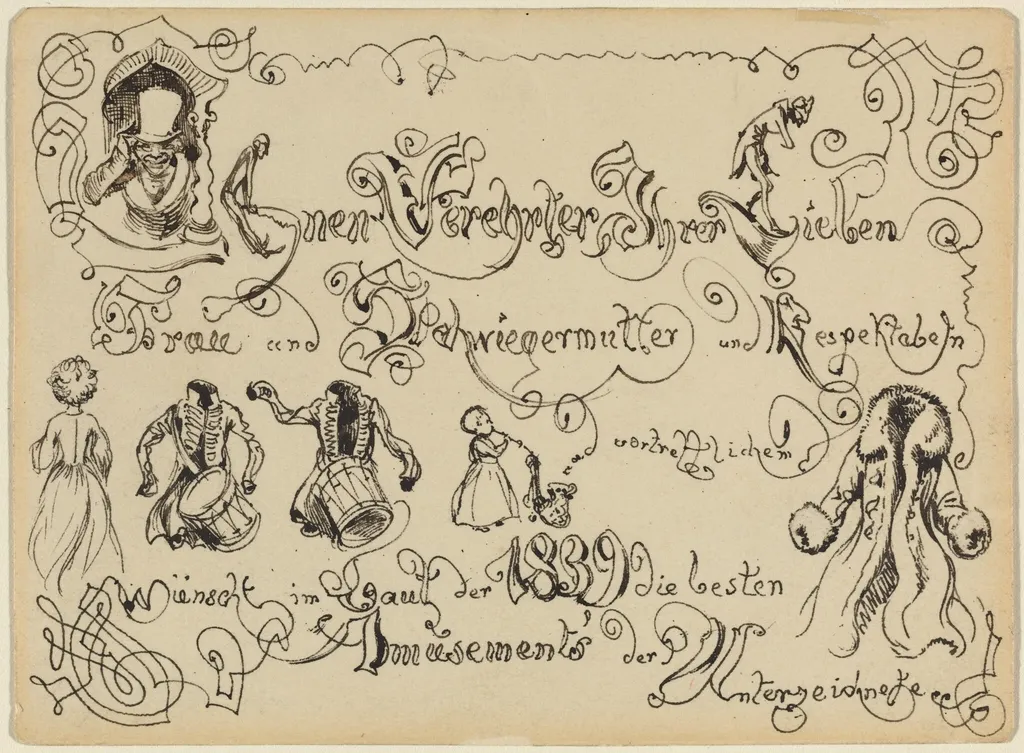 Ihnen Verehrter, Ihrer Lieben
Frau und Schwiegermutter und Respektabeln
und vortrefflichem
Wünscht im Lauf der 1839 die besten
Amüsements der
Unterzeichnete